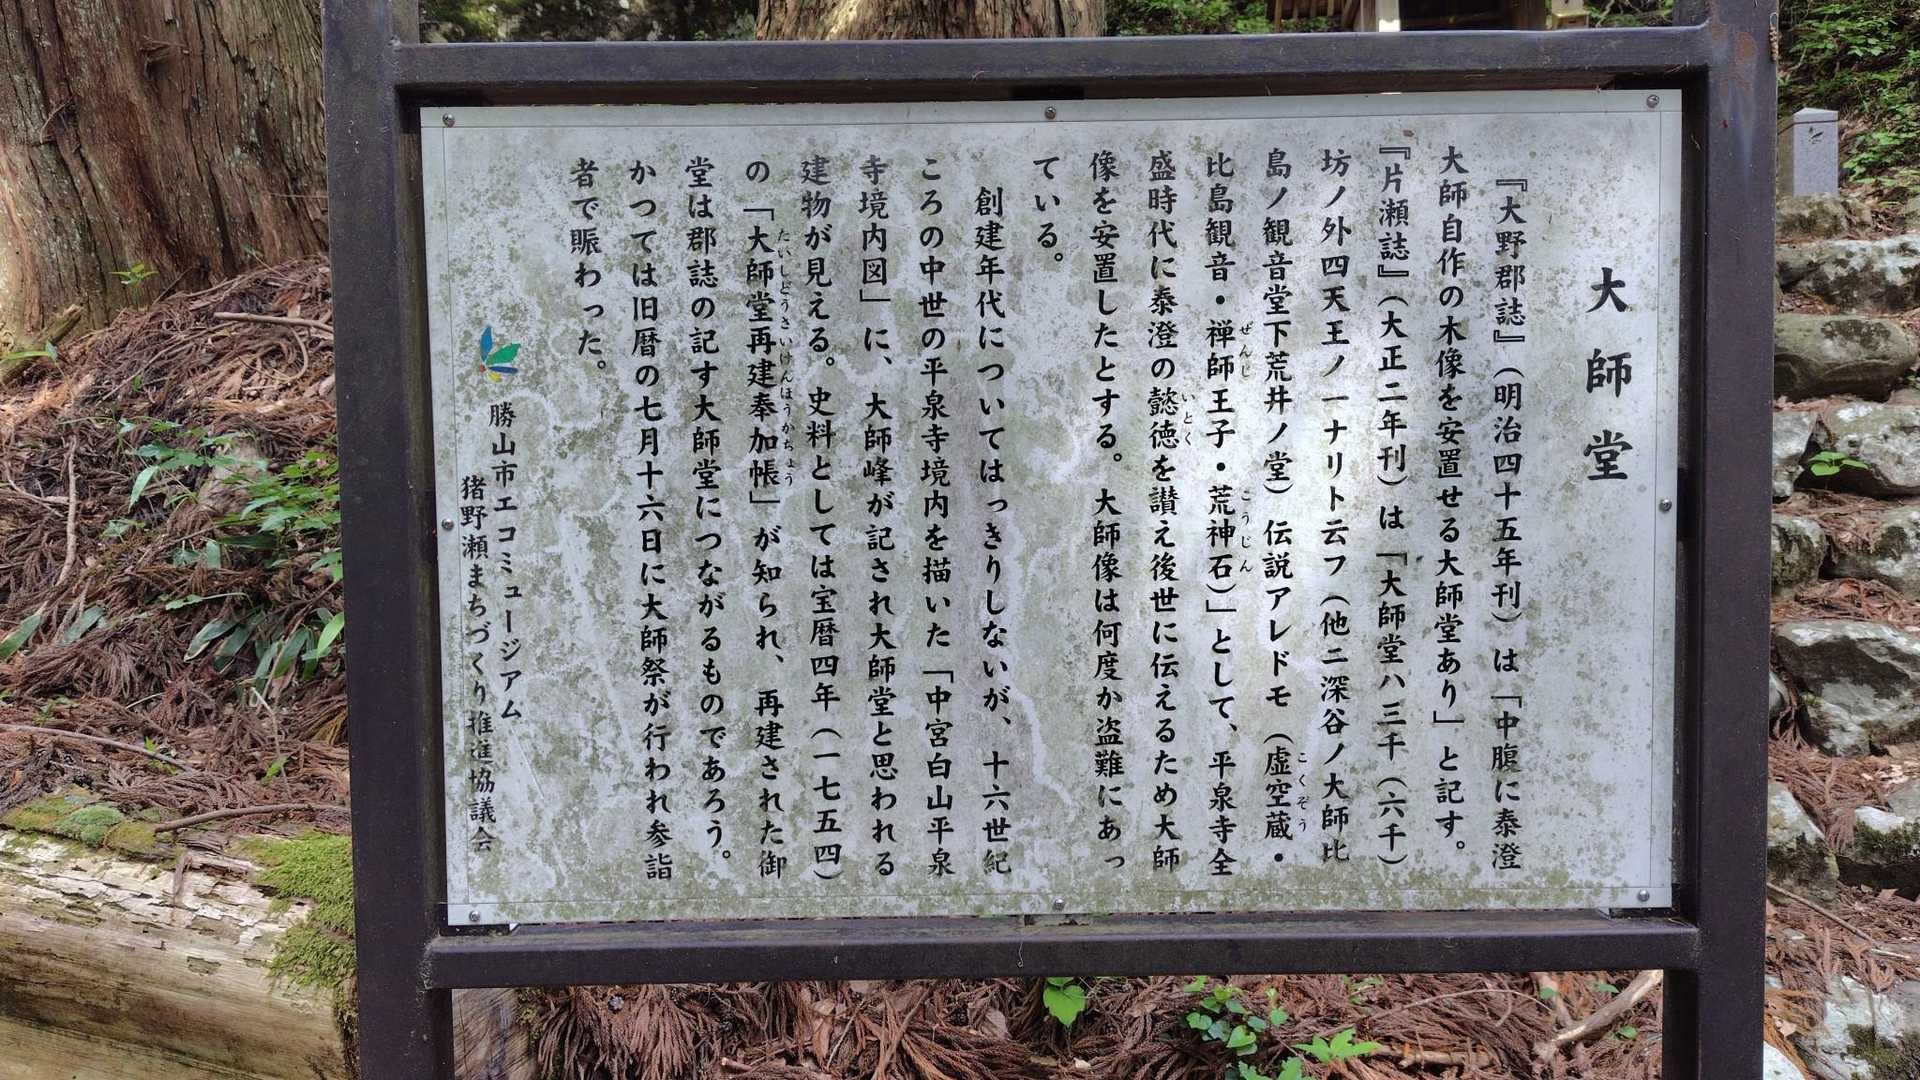 大師堂
『大野郡誌』（明治四十五年刊）は「中腹に泰澄
大師自作の木像を安置せる大師堂あり」と記す。
『片瀬誌』（大正二年刊）は「大師堂ハ三千（六千）
坊ノ外四天王ノ一ナリト云フ（他ニ深谷ノ大師比
島ノ観音堂下荒井ノ堂）伝説アレドモ（虚空蔵・
こくぞう
比島観音・禅師王子・荒神石）」として、平泉寺全
ぜんじ
こうじん
盛時代に泰澄の懿徳を讃え後世に伝えるため大師
いとく
像を安置したとする。大師像は何度か盗難にあっ
ている。
創建年代についてはっきりしないが、十六世紀
ころの中世の平泉寺境内を描いた「中宮白山平泉
寺境内図」に、大師峰が記され大師堂と思われる
建物が見える。史料としては宝暦四年（一七五四）
の「大師堂再建奉加帳」が知られ、再建された御
たいしどうさいけんほうかちょう
堂は郡誌の記す大師堂につながるものであろう。
かつては旧暦の七月十六日に大師祭が行われ参詣
者で賑わった。
勝山市エコミュージアム
猪野瀬まちづくり推進協議会